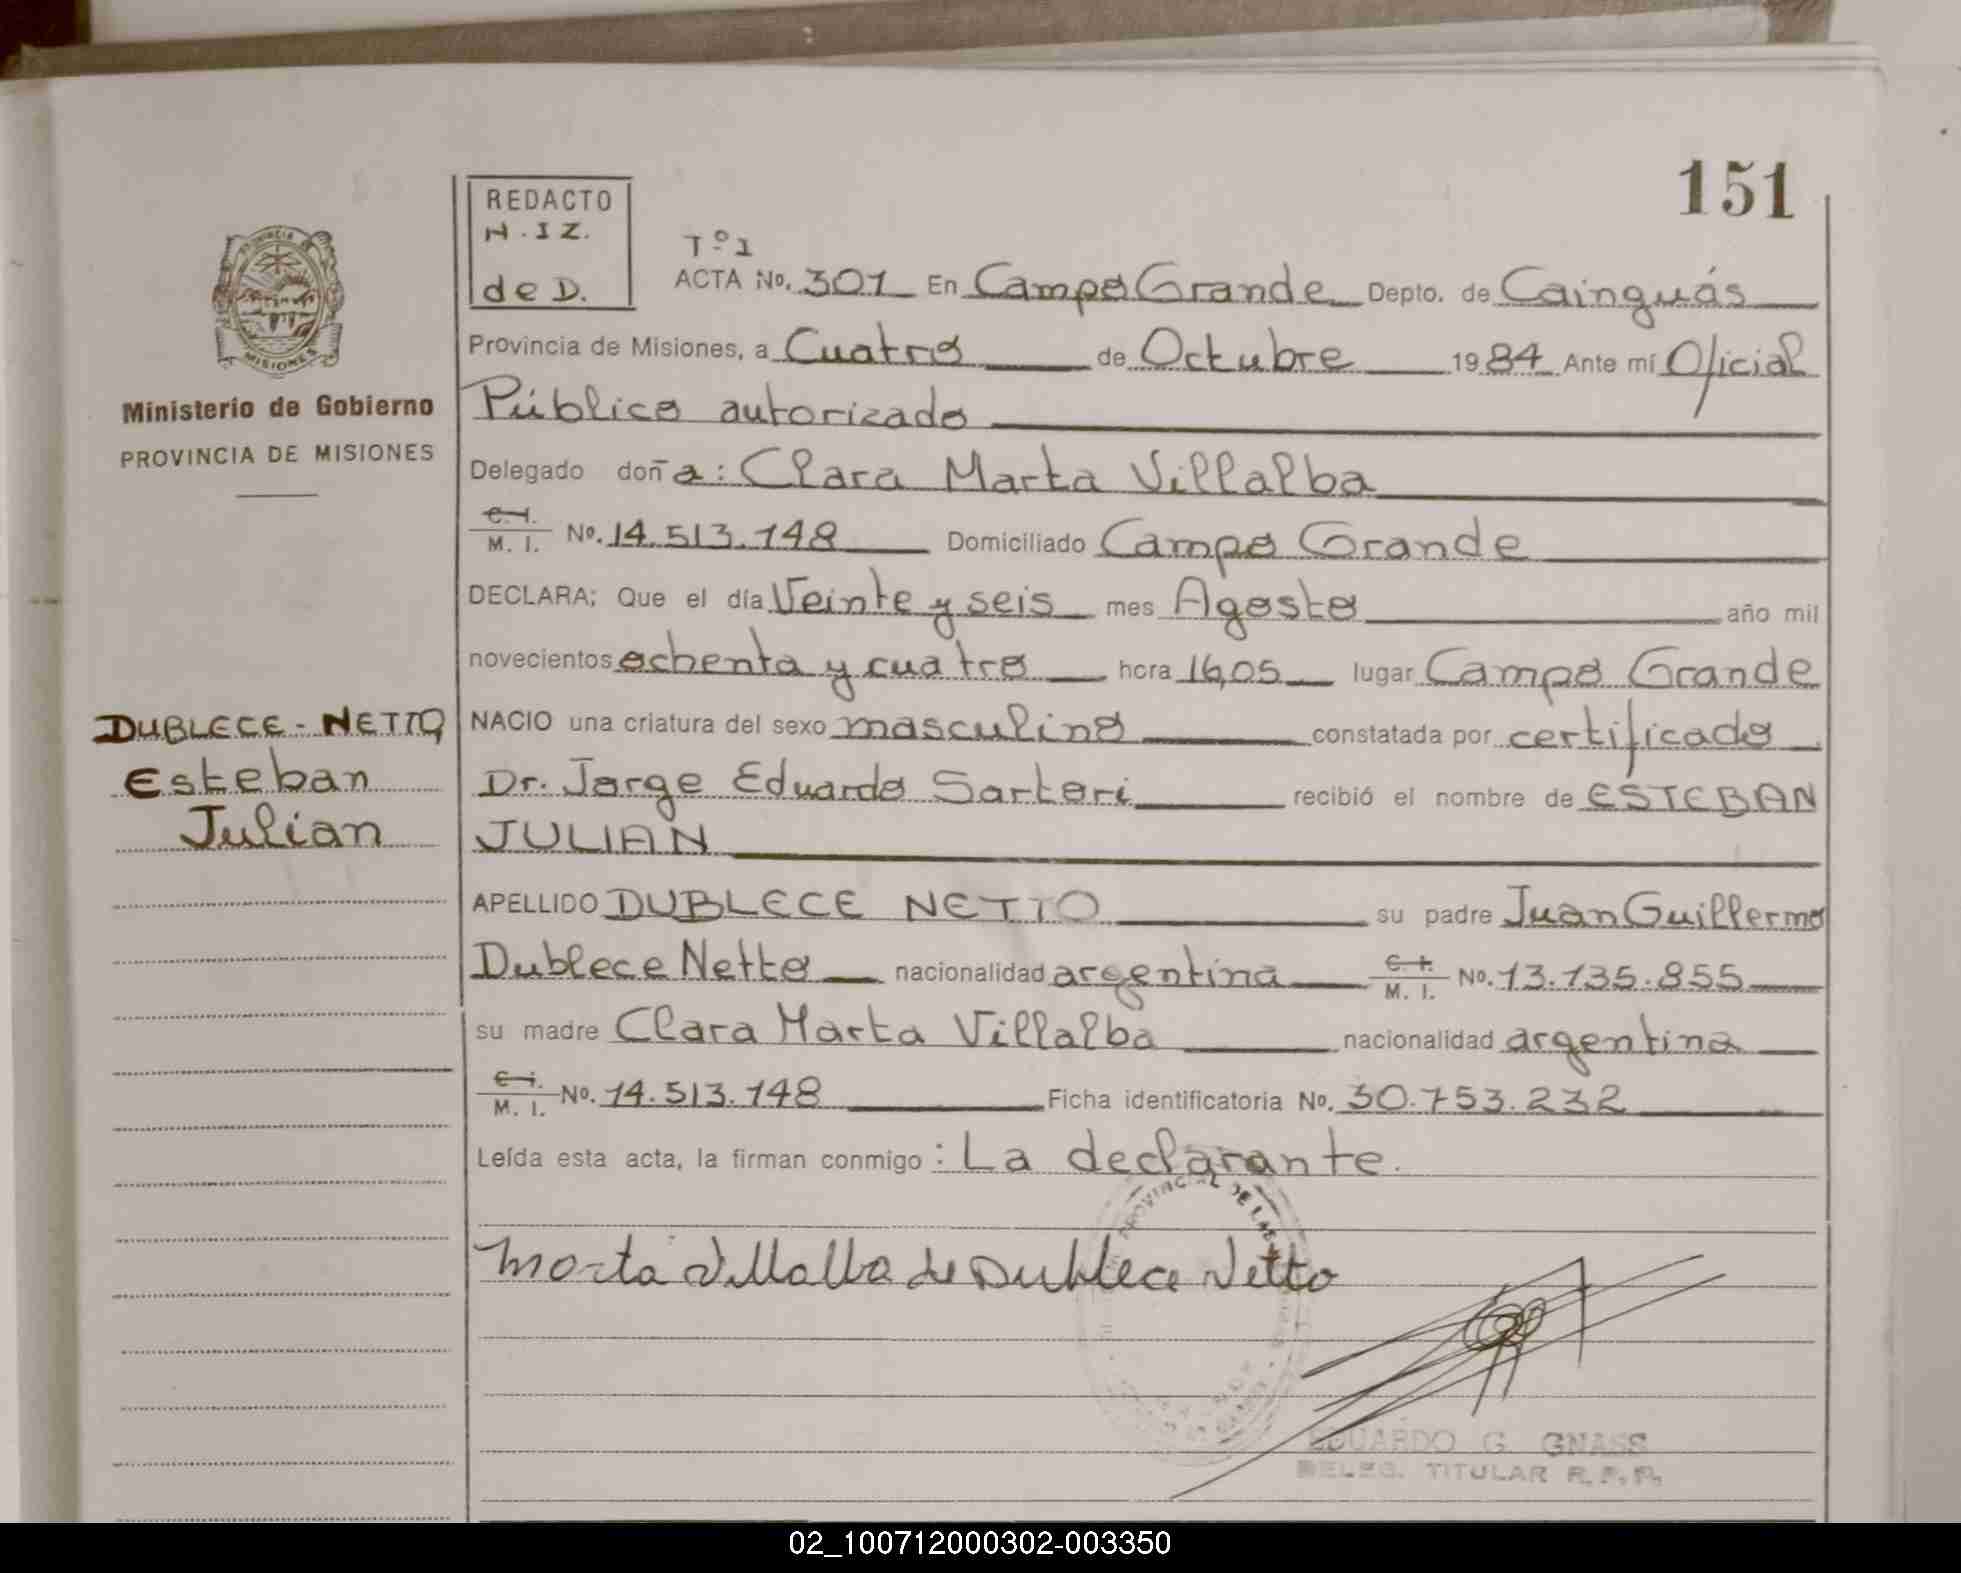 151
REDACTO
N.IZ.
de D.
Tº1
ACTA No. 301 En Campo Grande Depto. de Cainguás
Provincia de Misiones, a Cuatro de Octubre 1984 Ante mí Oficial
Público autorizado
Ministerio de Gobierno
PROVINCIA DE MISIONES
Delegado doña: Clara Marta Villalba
C.I.
M. I. No. 14.513.148 Domiciliado Campo Grande
DECLARA; Que el día Veinte y seis mes Agosto año mil
novecientos ochenta y cuatro hora 16,05 lugar Campo Grande
DUBLECE-NETTO
Esteban
Julian
NACIO una criatura del sexo masculino constatada por certificado
Dr. Jorge Eduardo Sartori recibió el nombre de ESTEBAN
JULIAN
APELLIDO DUBLECE NETTO su padre Juan Guillermo
Dublece Netto nacionalidad argentina C.I. M. I. No. 13.135.855
su madre Clara Marta Villalba nacionalidad argentina
C.I.
M. I. No. 14.513.148 Ficha identificatoria No. 30.753.232
Leída esta acta, la firman conmigo: La declarante.
PROVINCIAL DE LAS
Marta Villalba de Dublece Netto
EDUARDO G. GNASS
DELEG. TITULAR R.P.P.
02_100712000302-003350